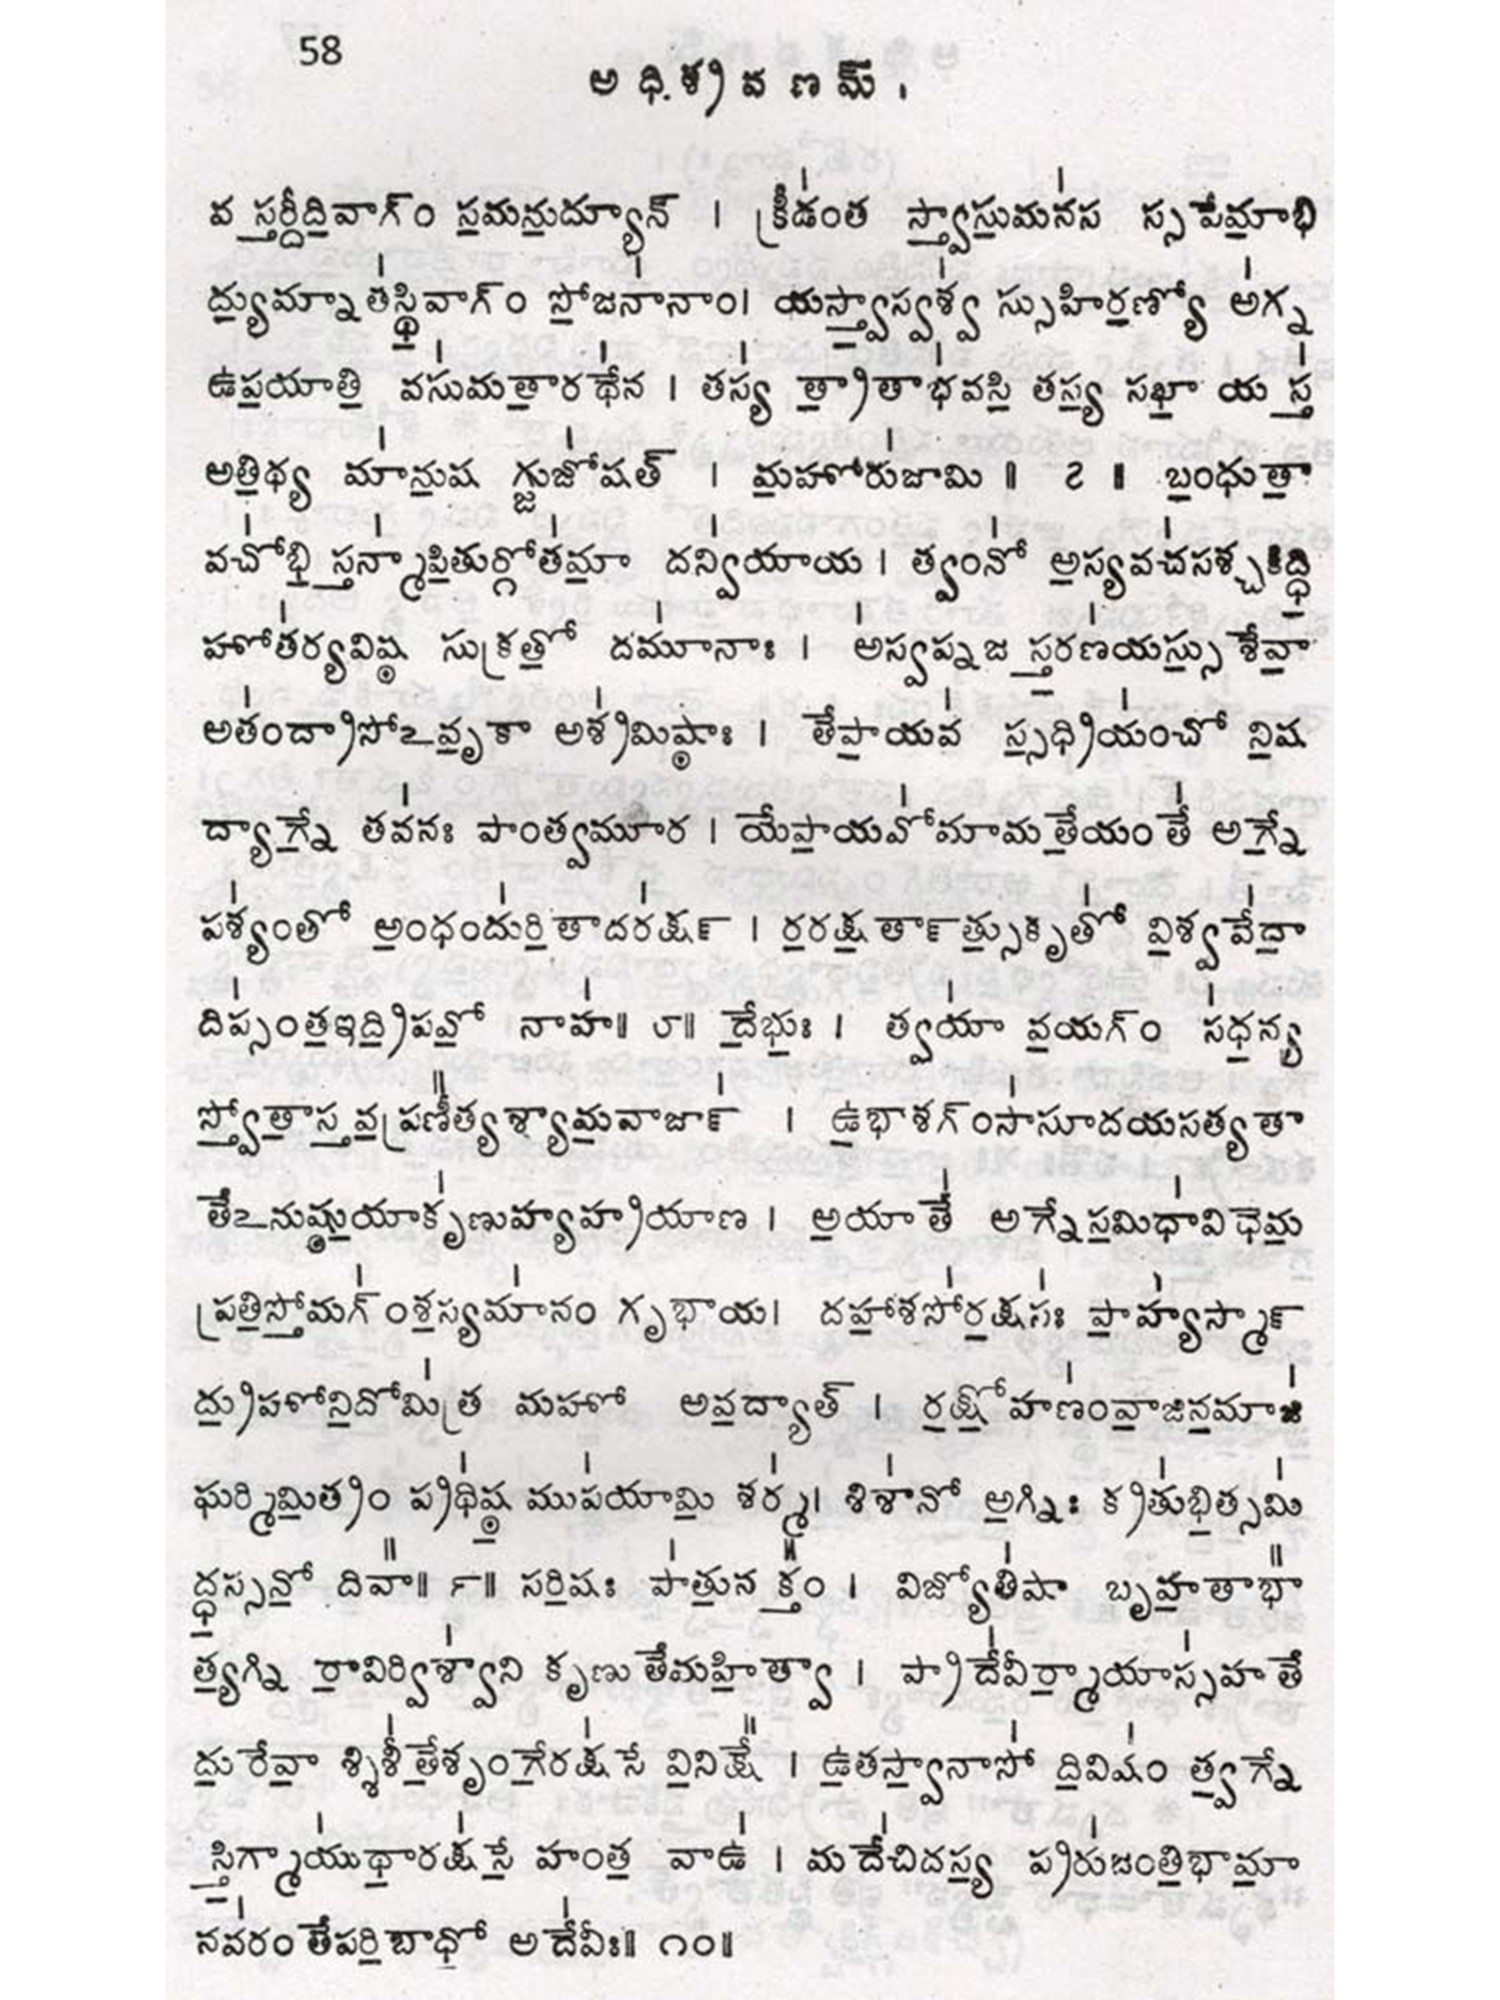 58
అధిశ్రవణమ్.
వ స్తర్దీదివాగ్ం సమనుద్యూన్ । క్రీడంత స్త్వాసుమనస స్సపేమాభి
ద్యుమ్నా తస్థివాగ్ం సోజనానాం। యస్త్వాస్వశ్వ స్సుహిరణ్యో అగ్న
ఉపయాతి వసుమతారథేన । తస్య త్రాతాభవసి తస్య సఖా య స్త
అతిథ్య మానుష గ్జుజోషత్ । మహోరుజామి ॥ ౭ ॥ బంధుతా
వచోభి స్తన్మాపితుర్గోతమా దన్వియాయ । త్వంనో అస్యవచసశ్చకిద్ధి
హోతర్యవిష్ఠ సుక్రతో దమూనాః । అస్వప్నజ స్తరణయస్సుశేవా
అతంద్రాసోఽవృకా అశ్రమిష్ఠాః । తేపాయవ స్సధ్రియంచో నిష
ద్యాగ్నే తవనః పాంత్వమూర । యేపాయవోమామతేయంతే అగ్నే
పశ్యంతో అంధందురితాదరక్ష౯ । రరక్షతా౯త్సుకృతో విశ్వవేదా
దిప్సంతఇద్రిపవో నాహ॥ ౮॥ దేభుః । త్వయా వయగ్ం సధన్య
స్త్వోతాస్తవప్రణీత్యశ్యామవాజా౯ । ఉభాశగ్ంసాసూదయసత్యతా
తేఽనుష్ఠుయాకృణుహ్యహ్రయాణ । అయాతే అగ్నేసమిధావిధెమ
ప్రతిస్తోమగ్ంశస్యమానం గృభాయ। దహాశసోరక్షసః పాహ్యస్మా౯
ద్రుహోనిదోమిత్ర మహో అవద్యాత్ । రక్షోహణంవాజినమాజి
ఘర్మిమిత్రం ప్రథిష్ఠ ముపయామి శర్మ। శిశానో అగ్నిః క్రతుభిత్సమి
ద్ధస్సనో దివా॥ ౯॥ సరిషః పాతునక్తం । విజ్యోతిషా బృహతాభా
త్యగ్ని రావిర్విశ్వాని కృణుతేమహిత్వా । ప్రాదేవీర్మాయాస్సహతే
దురేవా శ్శిశీతేశృంగేరక్షసే వినిక్షే । ఉతస్వానాసో దివిషం త్వగ్నే
స్తిగ్మాయుధారక్షసే హంత వాఉ । మదేచిదస్య ప్రరుజంతిభామా
నవరంతేపరిబాధో అదేవీః॥ ౧౦॥